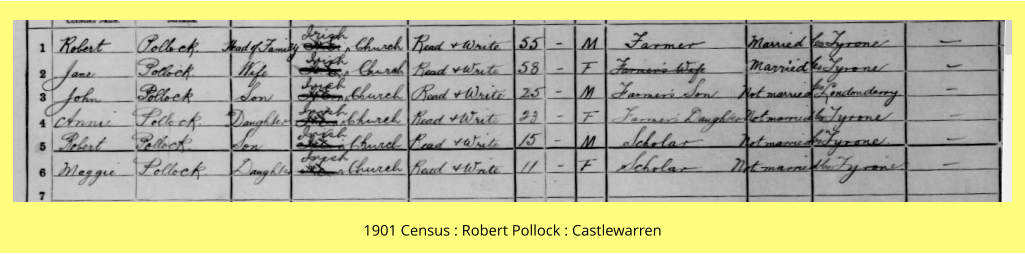 1 Robert Pollock Head of Family Irish Church Read & Write 55 – M Farmer Married Co Tyrone —
2 Jane Pollock Wife Irish Church Read & Write 58 – F Farmer's Wife Married Co Tyrone —
3 John Pollock Son Irish Church Read & Write 25 – M Farmer's Son Not married Co Londonderry —
4 Annie Pollock Daughter Irish Church Read & Write 23 – F Farmer's Daughter Not married Co Tyrone —
5 Robert Pollock Son Irish Church Read & Write 15 – M Scholar Not married Co Tyrone —
6 Maggie Pollock Daughter Irish Church Read & Write 11 – F Scholar Not married Co Tyrone —
7
1901 Census : Robert Pollock : Castlewarren